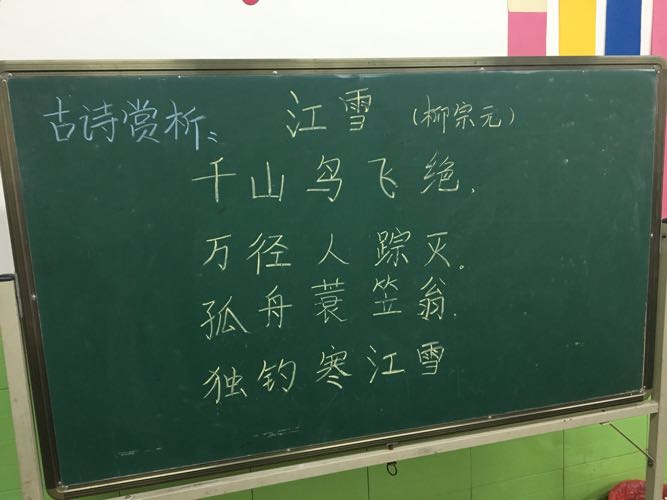 古诗赏析：
江雪 (柳宗元)
千山鸟飞绝,
万径人踪灭。
孤舟蓑笠翁.
独钓寒江雪